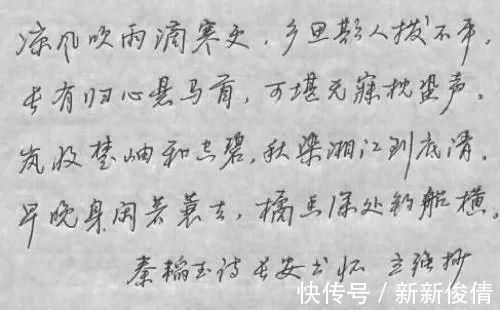 凉风吹雨滴寒更，乡思欺人拨不平。
长有归心悬马首，可堪无寐枕蛩声。
岚收楚岫和空碧，秋染湘江到底清。
早晚身闲著蓑去，橘香深处钓船横。
秦韬玉诗 长安书怀 立强抄
快传号 / 新新俊倩